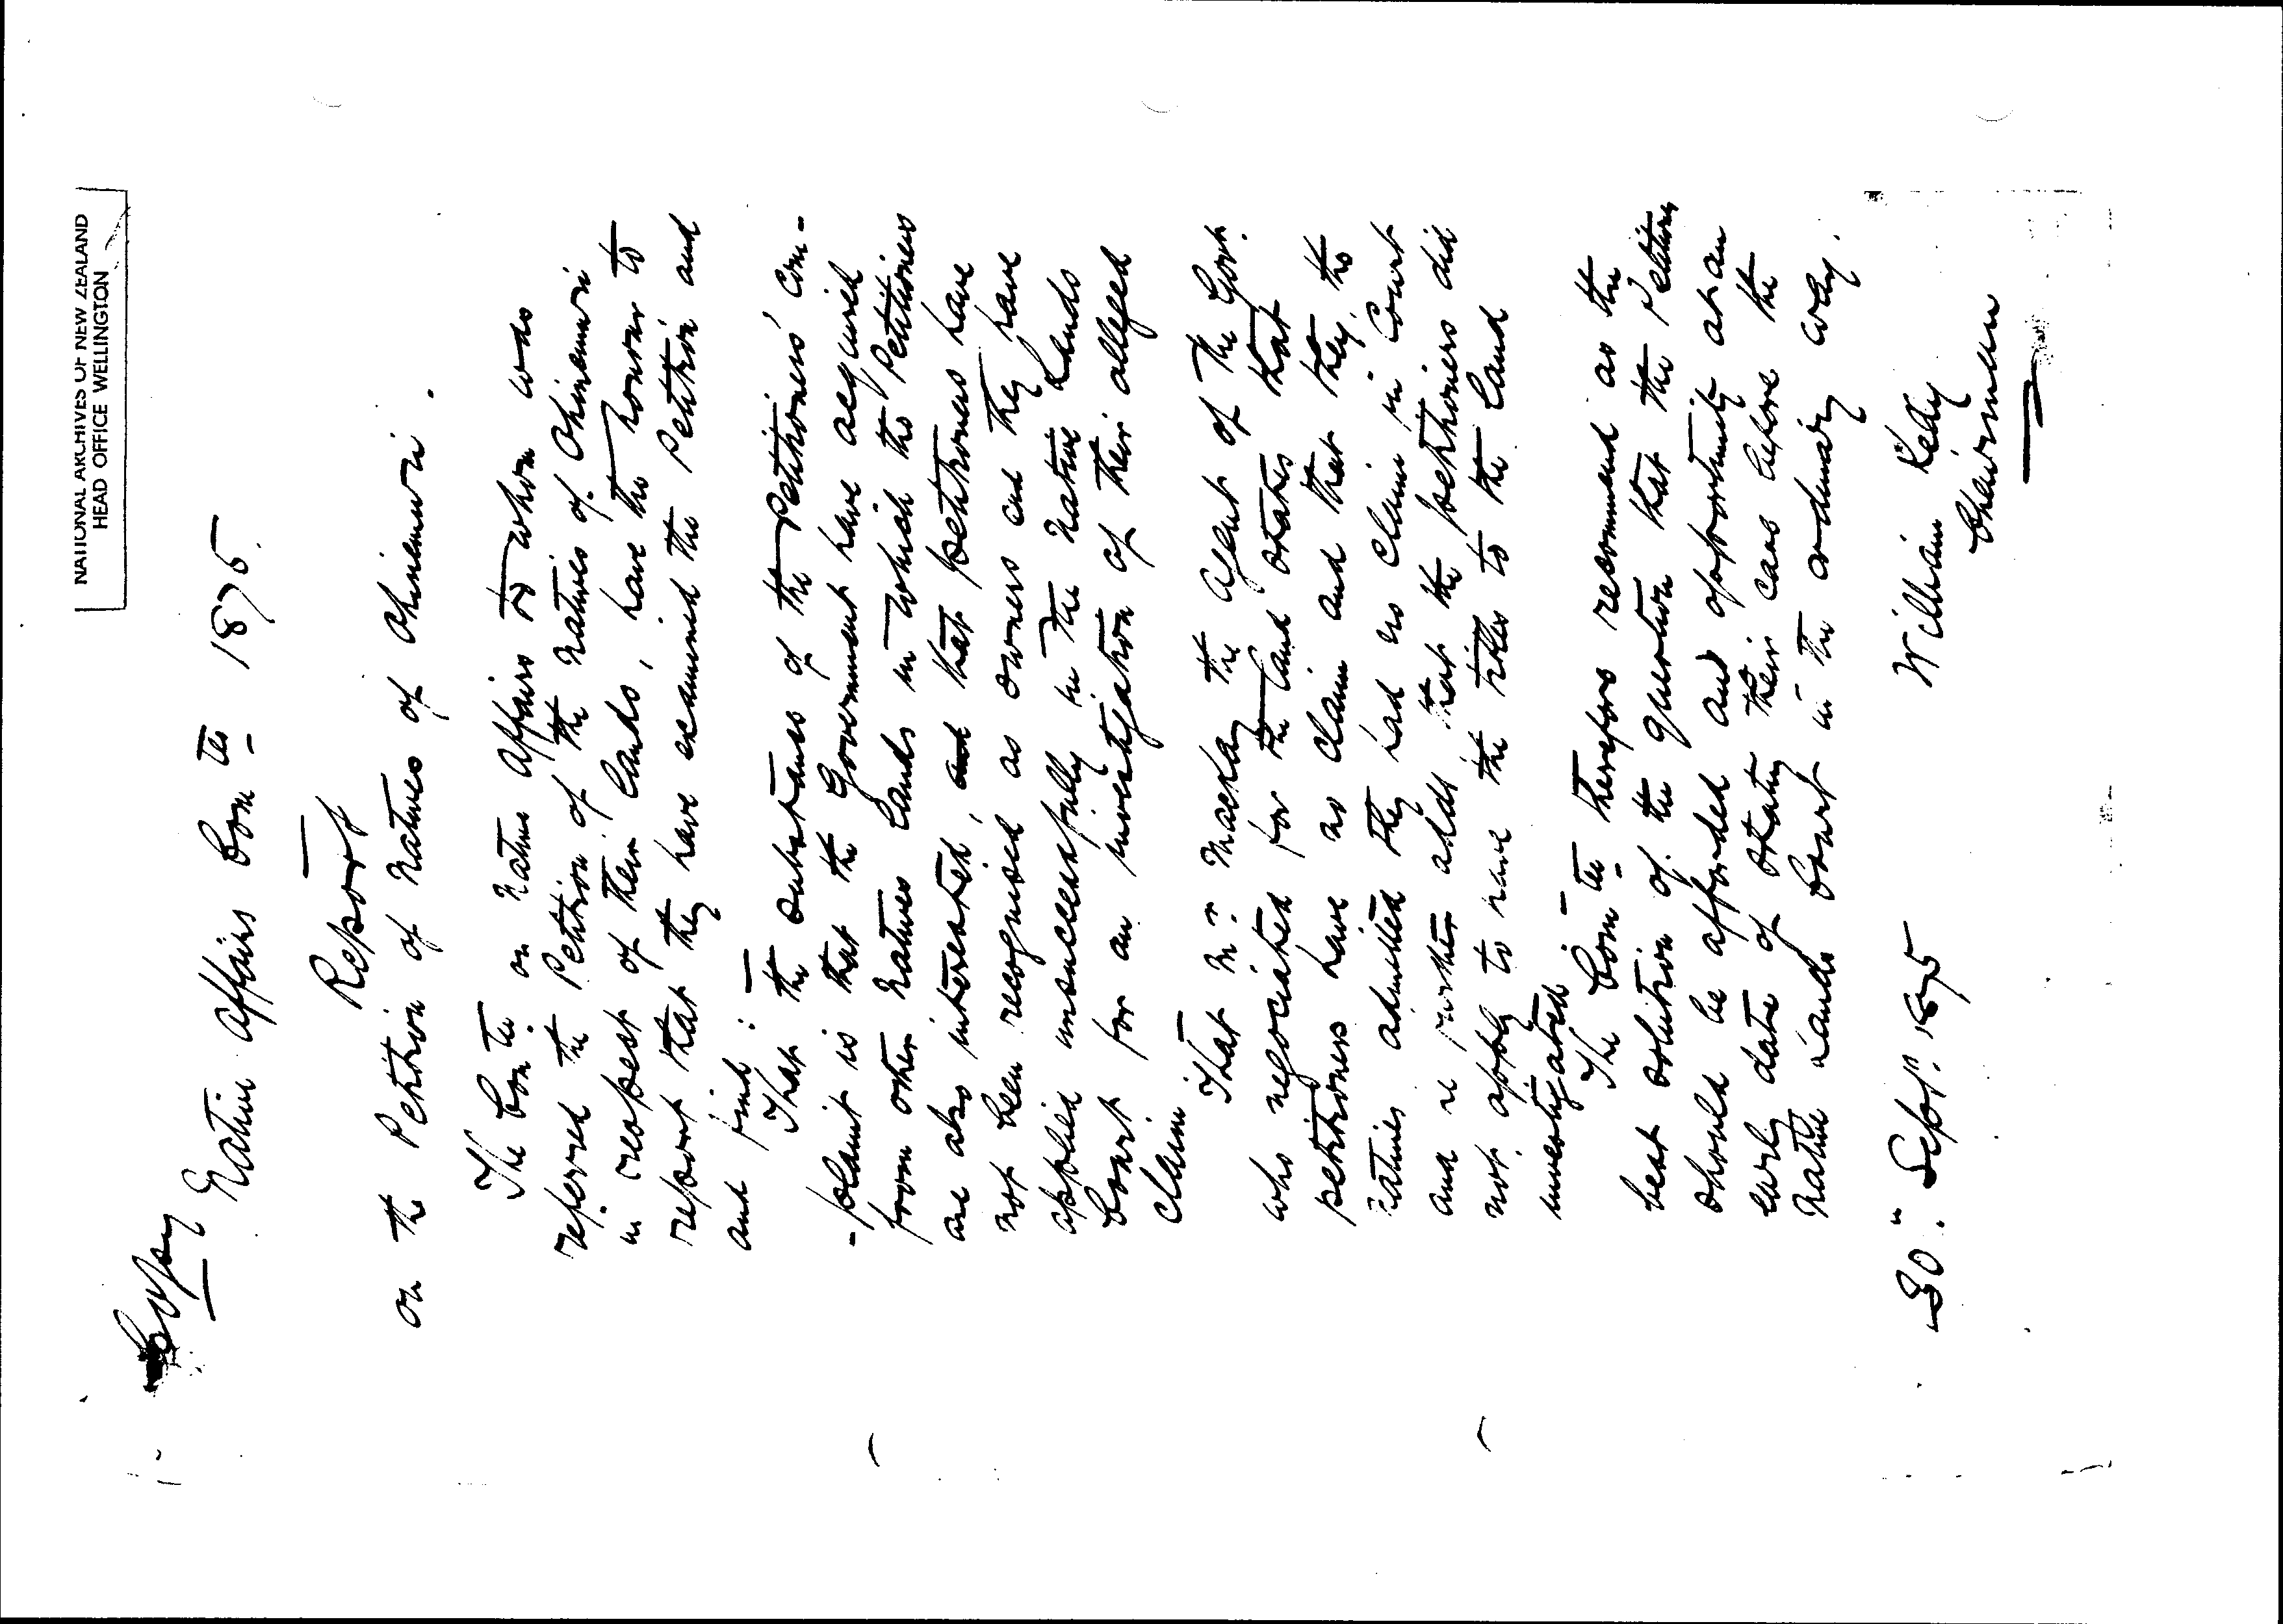 NATIONAL ARCHIVES OF NEW ZEALAND
HEAD OFFICE WELLINGTON
Copy
Native Affairs Com tee 1875.
Report
on the Petition of Natives of Ohinemuri.
The Com tee on Native Affairs to whom was
referred the Petition of the Natives of Ohinemuri
in respect of their lands, have the honour to
report that they have examined the Petition and
and find : —
That the substance of the Petitioners' com-
-plaint is that the Government have acquired
from other Natives lands in which the Petitioners
are also interested, and that petitioners have
not been recognised as owners and they have
applied unsuccessfully in the Native Lands
Court for an investigation of their alleged
claim —
That Mr. Mackay the agent of the Govt.
who negociated for the land states that
petitioners have no claim and that they, the
natives admitted they had no claim in Court
and he further adds that the petitioners did
not apply to have the titles to the land
investigated —
The Com tee therefore recommend as the
best solution of the question that the Petitioners
should be afforded and opportunity at an
early date of stating their case before the
Native Lands Court in the ordinary way.
William Kelly
Chairman
30th Sept. 1875